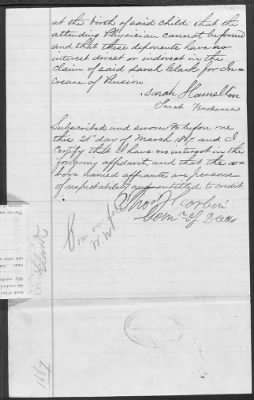 at the birth of said child that the
attending Physician cannot be found
and that these deponents have no
interest direct or indirect in the
claim of said Sarah Clark for In-
crease of Pension
Sarah Hamelton
Sarah Buchanan
Subscribed and sworn to before me
this 25" day of March 1867 and I
certify that I have no interest in the
foregoing affidavit and that the a-
bove named affiants are persons
of respectability and entitled to credit
Thos J
Com'r of Deeds